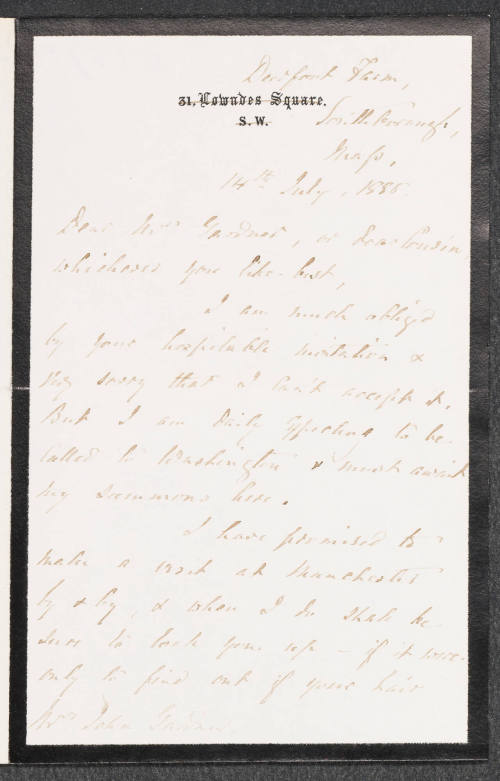 Deerfoot Farm,
31, Lowndes Square.
S. W.
Southborough,
Mass,
14th July, 1885
Dear Mrs Gardner, or dear Cousin
whichever you like best,
I am much obliged
by your hospitable invitation &
very sorry that I can't accept it.
But I am daily expecting to be
called to Washington & must await
my summons here.
I have promised to
make a visit at Manchester
by & by, & when I do shall be
sure to look you up - if it were
only to find out if your hair
Mrs John Gardner